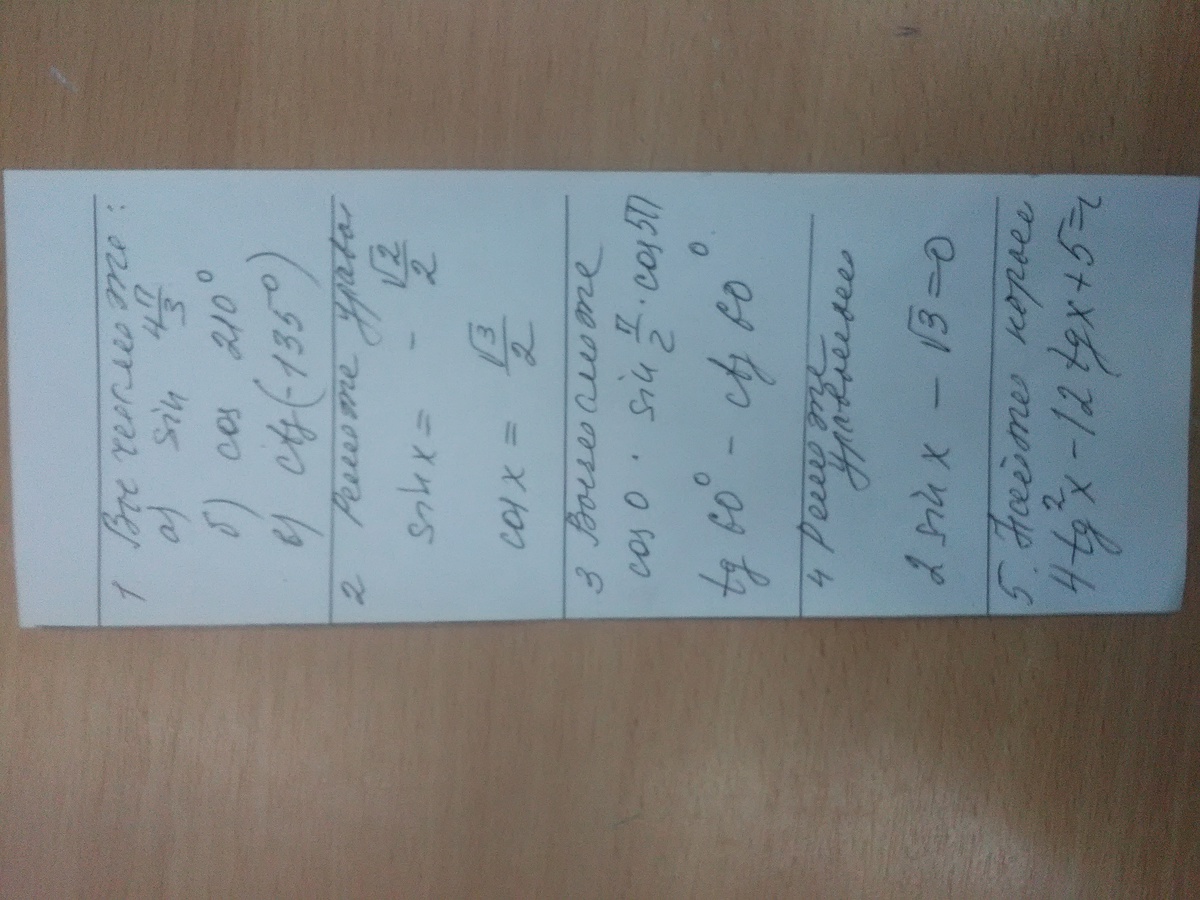 1 Вычислите:
а) sin 4π/3
б) cos 210°
в) ctg(-135°)
2 Решите уравн
sin x = - √2/2
cos x = √3/2
3 Вычислите
cos 0 · sin π/2 · cos 5π
tg 60° - ctg 60°
4 Решите
уравнение
2 sin x - √3 = 0
5. Найдите корнее
4 tg² x - 12 tg x + 5 =